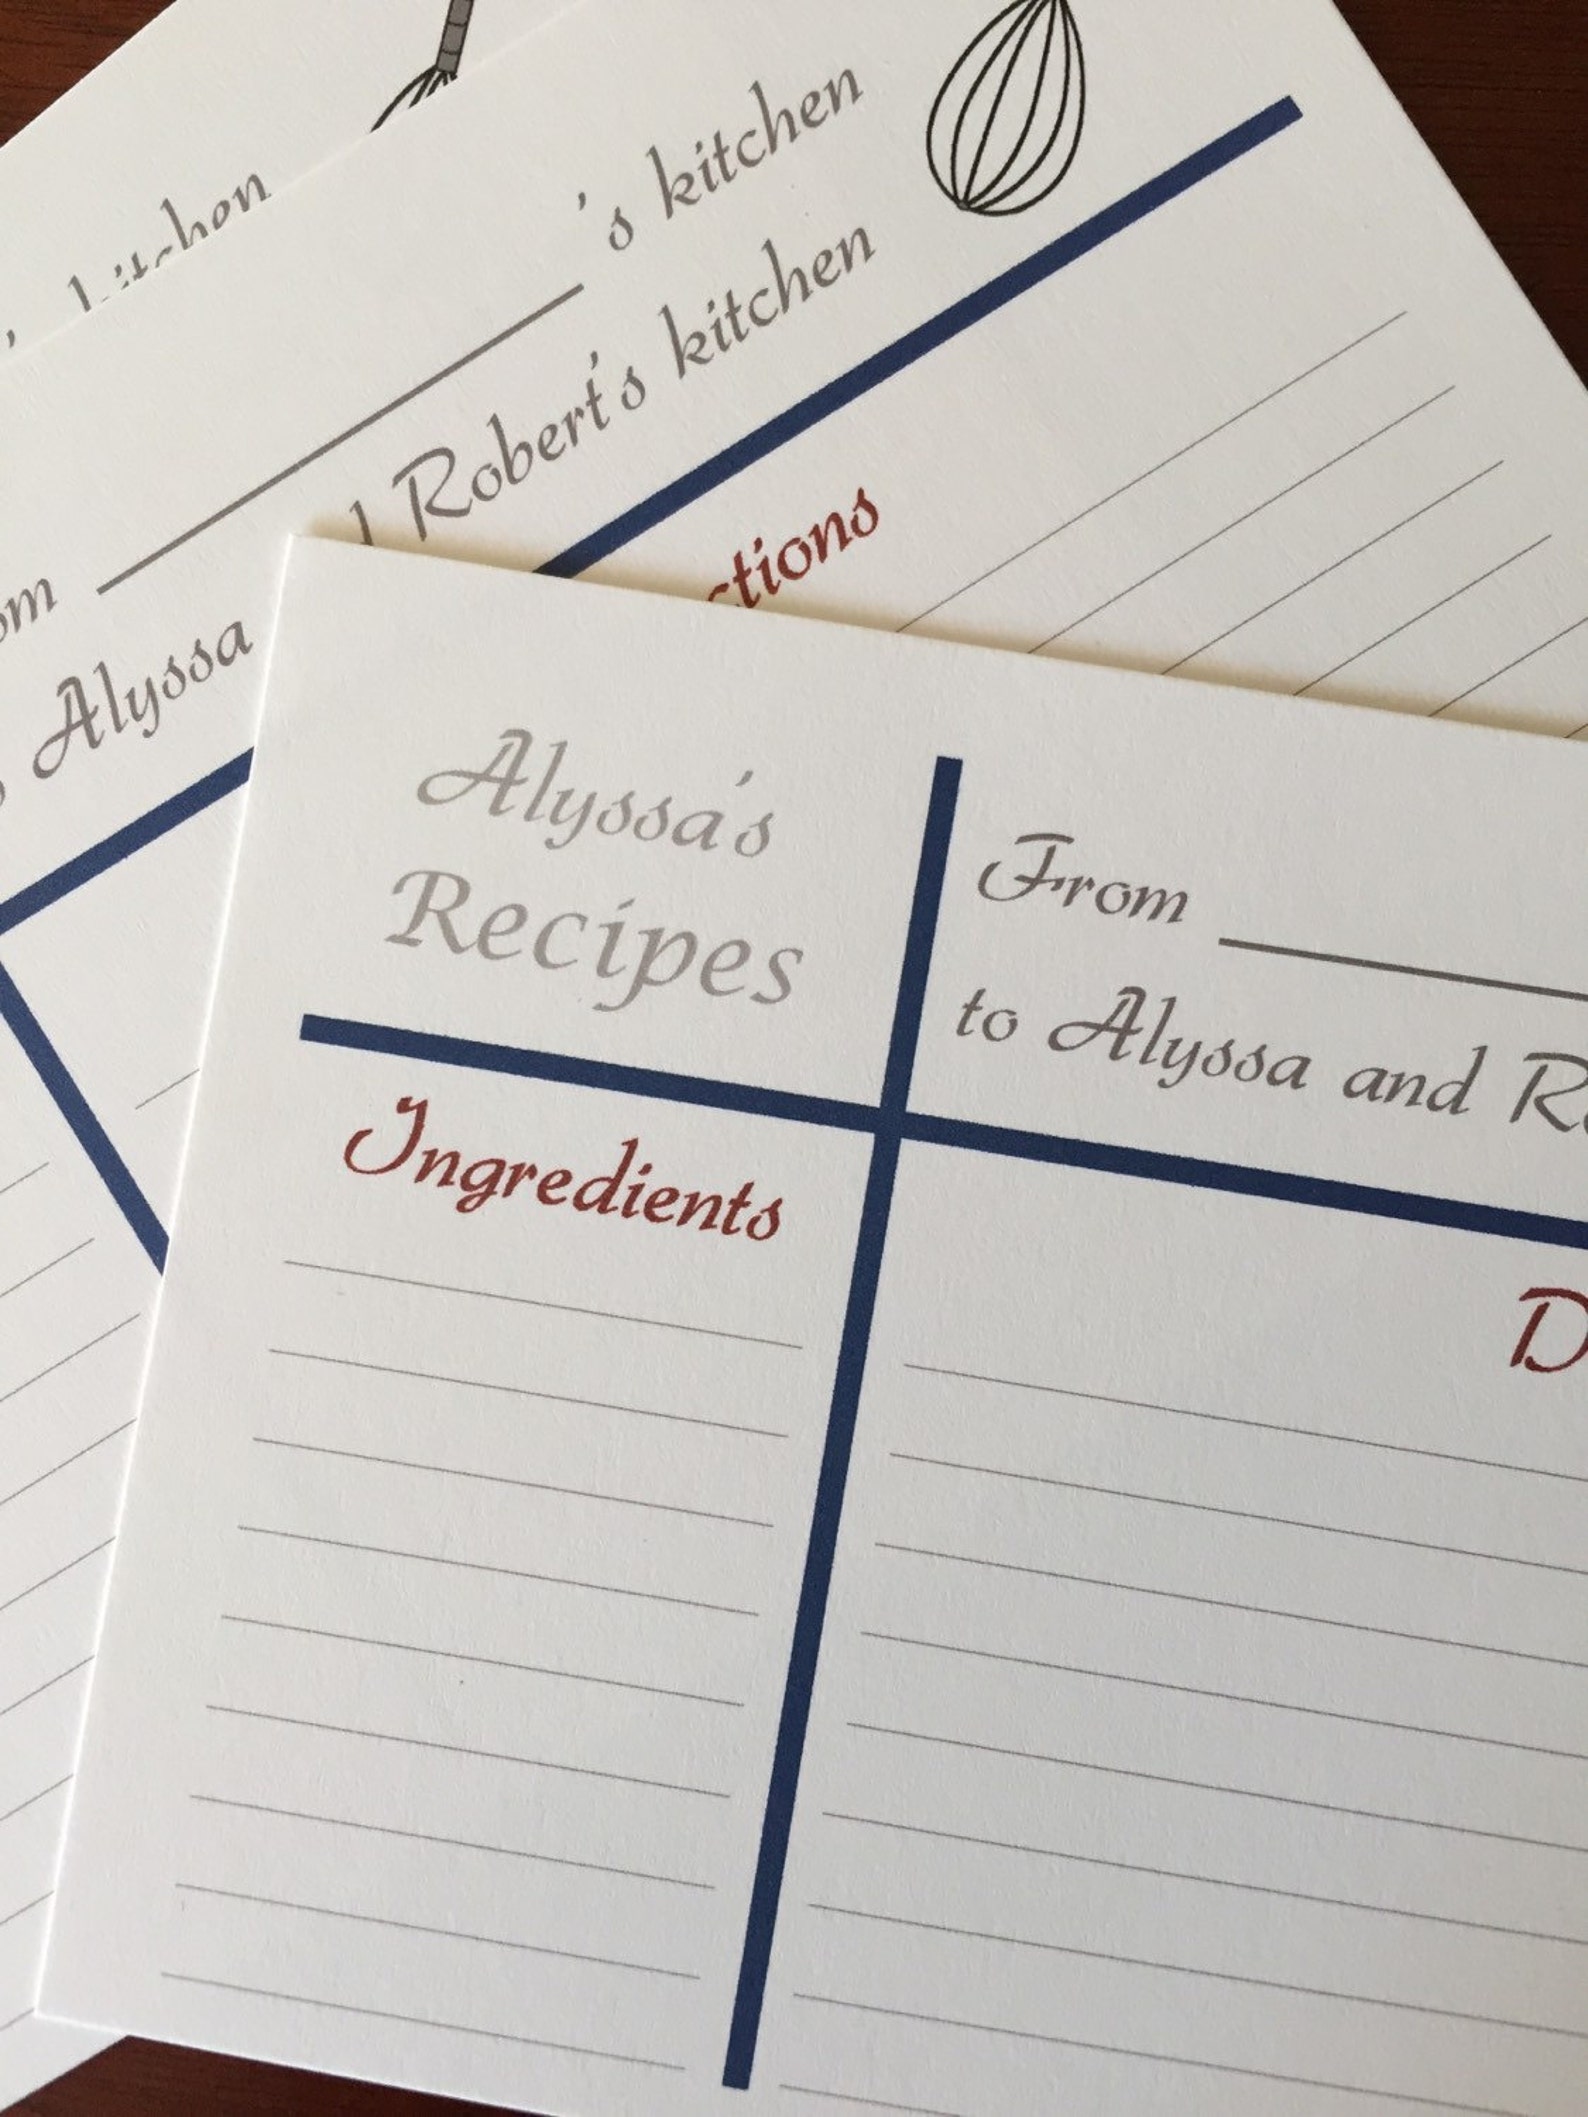 kitchen
's kitchen
Robert's kitchen
Alyssa
Alyssa's
Recipes
From
to Alyssa and
Ingredients